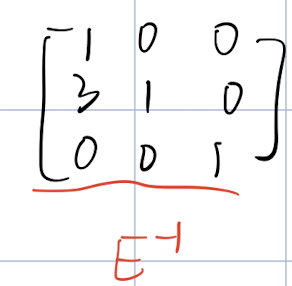 [1 0 0
3 1 0
0 0 1]
E⁻¹